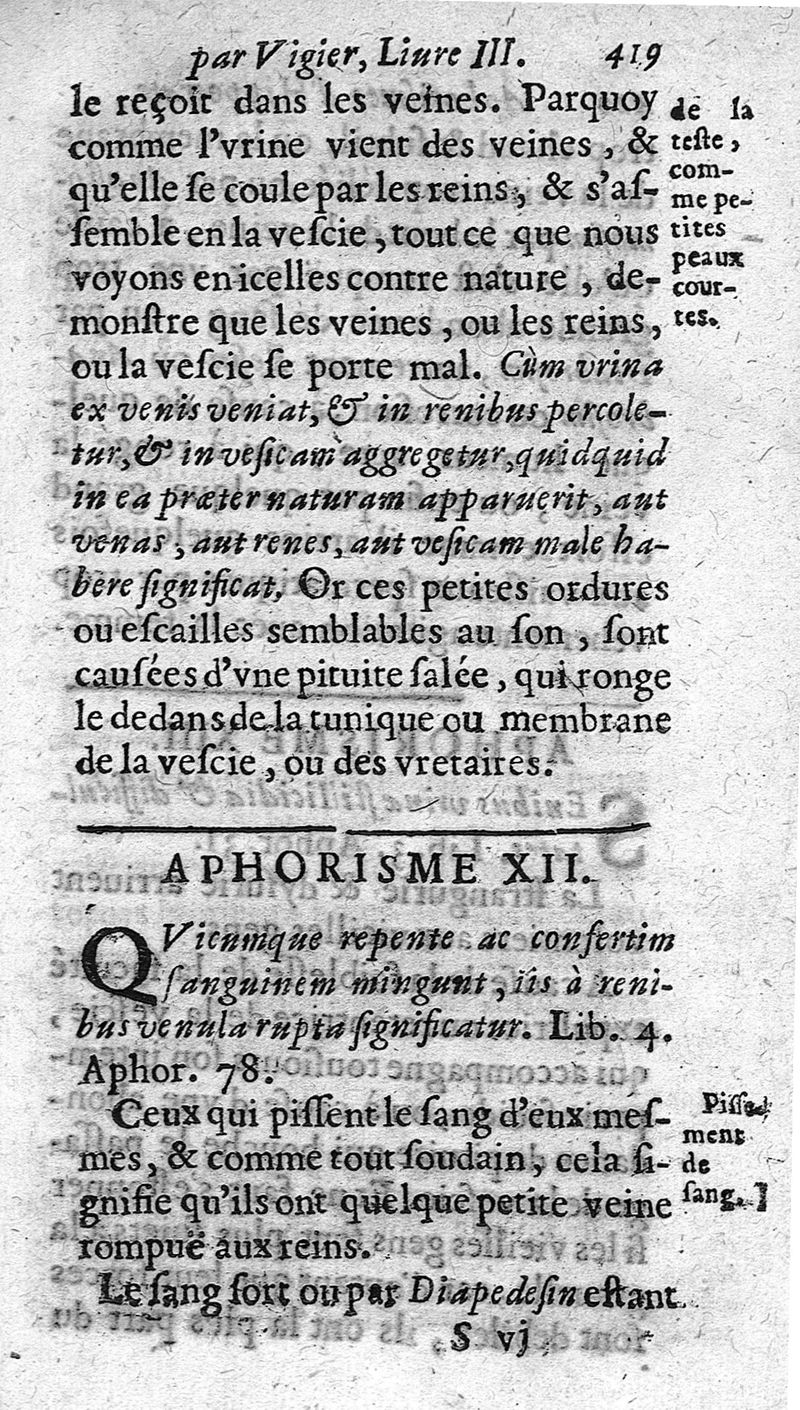 par Vigier, Liure III. 419
le reçoit dans les veines. Parquoy
comme l'vrine vient des veines, &
qu'elle ſe coule par les reins, & s'aſ-
ſemble en la veſcie, tout ce que nous
voyons en icelles contre nature, de-
monſtre que les veines, ou les reins,
ou la veſcie ſe porte mal. Cùm vrina
ex venis veniat, & in renibus percole-
tur, & in veſicam aggregetur, quidquid
in ea præter naturam apparuerit, aut
venas, aut renes, aut veſicam male ha-
bere ſignificat. Or ces petites ordures
ou eſcailles semblables au ſon, ſont
cauſées d'vne pituite ſalée, qui ronge
le dedans de la tunique ou membrane
de la veſcie, ou des vretaires.
de la
teſte,
com-
me pe-
tites
peaux
cour-
tes.
APHORISME XII.
QVicumque repente ac confertim
ſanguinem mingunt, iis à reni-
bus venula rupta ſignificatur. Lib. 4.
Aphor. 78.
Ceux qui piſſent le ſang d'eux meſ-
mes, & comme tout ſoudain, cela ſi-
gnifie qu'ils ont quelque petite veine
rompuë aux reins.
Le ſang ſort ou par Diapedeſin eſtant
Piſſe-
ment
de
ſang.
S vj